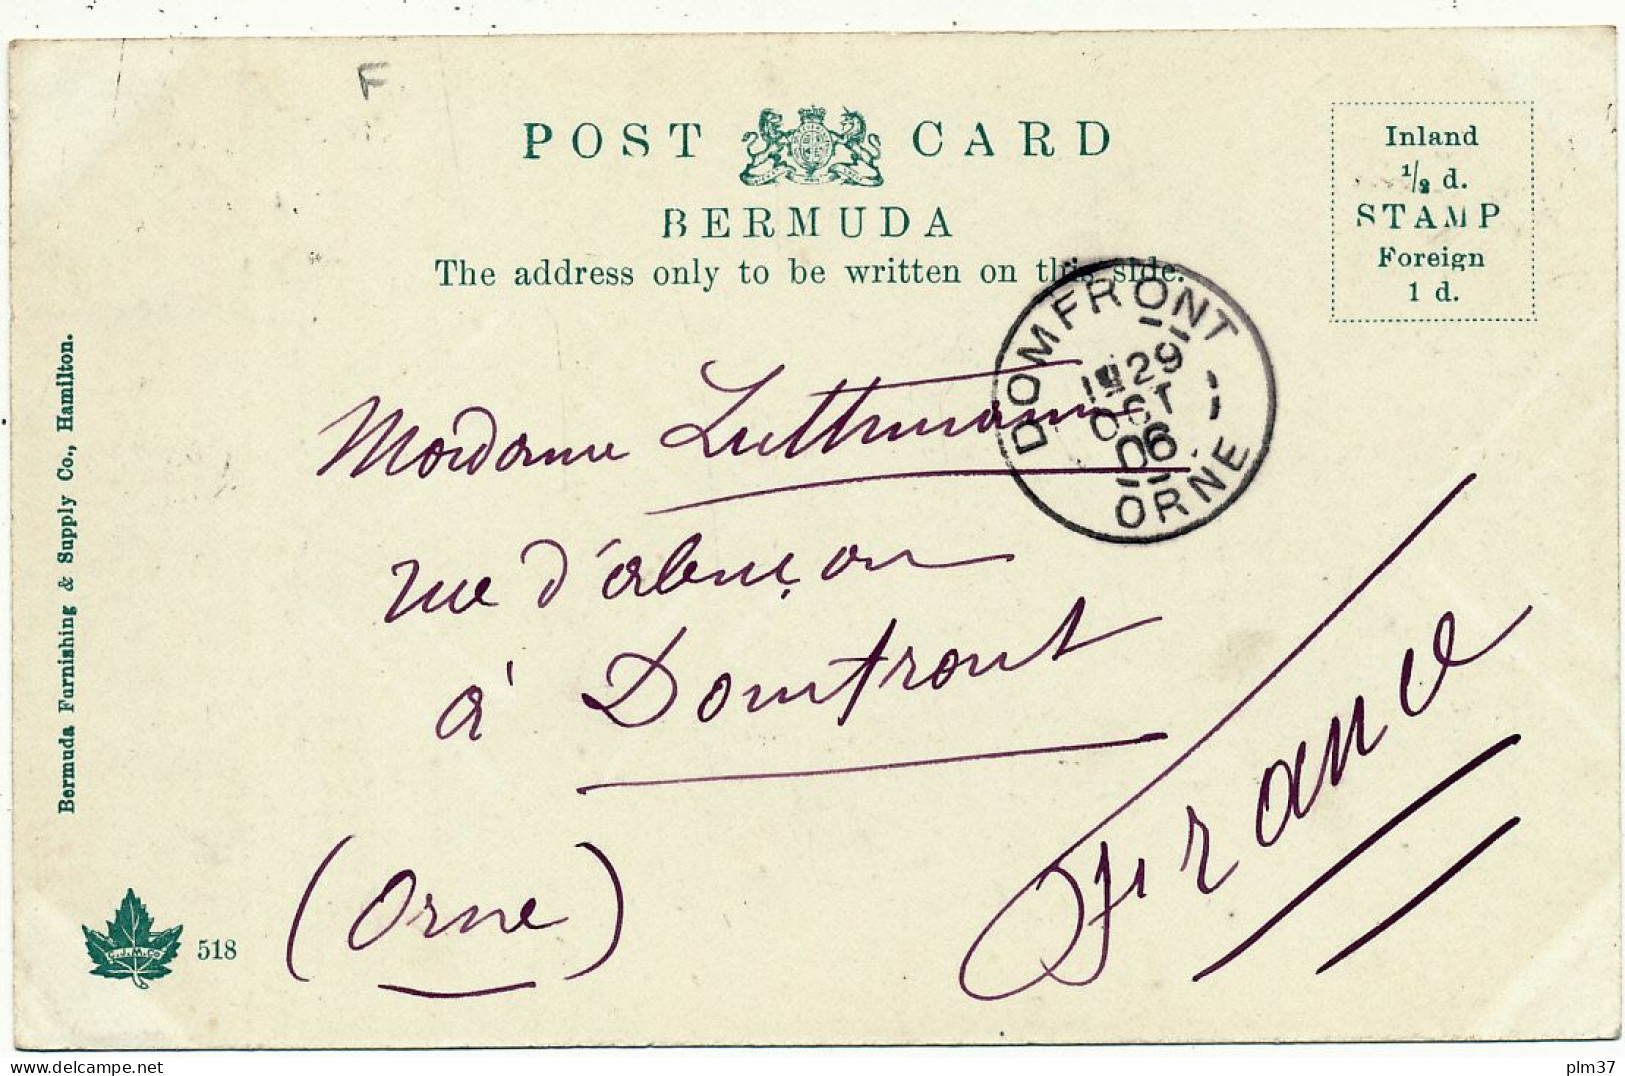 F
POST CARD
BERMUDA
The address only to be written on this side.
Inland
1/2 d.
STAMP
Foreign
1 d.
DOMFRONT
29
OCT
06
ORNE
Madame Luthmann
rue d'alençon
à Domfront
(Orne)
France
Bermuda Furnishing & Supply Co., Hamilton.
518
plm37